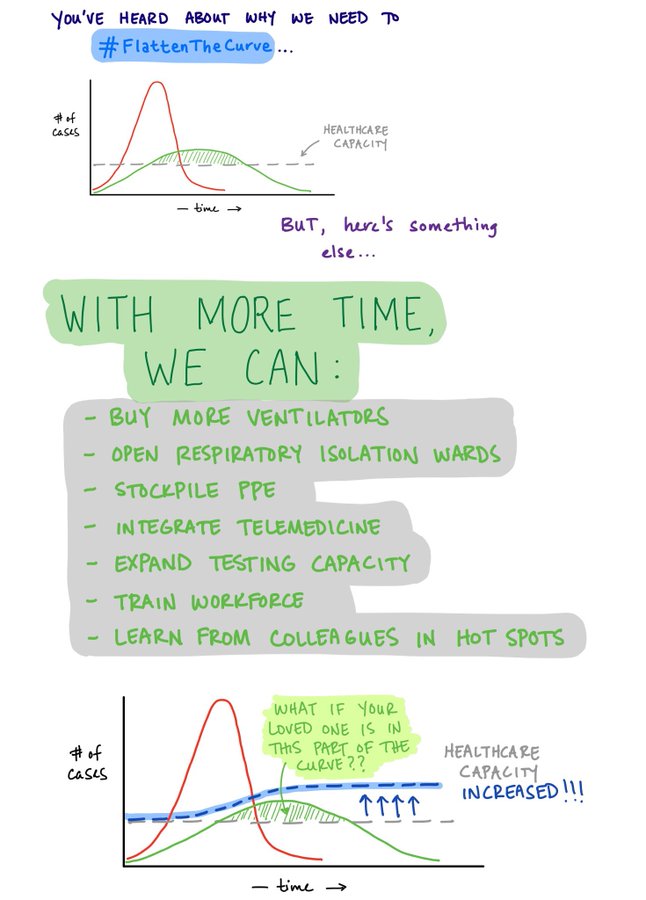 YOU'VE HEARD ABOUT WHY WE NEED TO
#FlattenTheCurve...
# of
cases
HEALTHCARE
CAPACITY
— time →
BUT, here's something
else...
WITH MORE TIME,
WE CAN:
- BUY MORE VENTILATORS
- OPEN RESPIRATORY ISOLATION WARDS
- STOCKPILE PPE
- INTEGRATE TELEMEDICINE
- EXPAND TESTING CAPACITY
- TRAIN WORKFORCE
- LEARN FROM COLLEAGUES IN HOT SPOTS
# of
cases
WHAT IF YOUR
LOVED ONE IS IN
THIS PART OF THE
CURVE??
HEALTHCARE
CAPACITY
INCREASED!!!
— time →